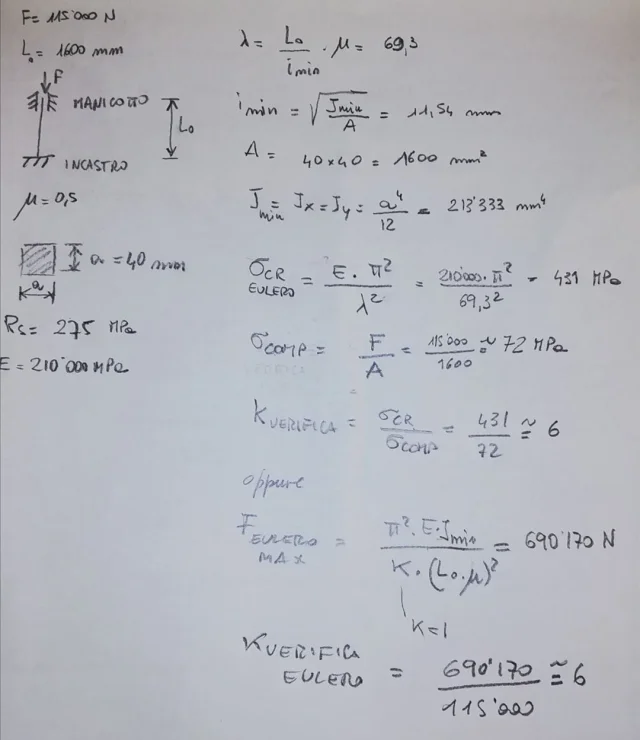 F= 115'000 N
L₀= 1600 mm
F
MANICOTTO
L₀
INCASTRO
μ=0,5
a = 40 mm
a
Rs= 275 MPa
E = 210'000 MPa
λ= L₀/imin · μ= 69,3
imin = √(Jmin/A) = 11,54 mm
A = 40×40 = 1600 mm²
Jmin = Jx = Jy = a⁴/12 = 213'333 mm⁴
σCR EULERO = E · π²/λ² = 210'000·π²/69,3² = 431 MPa
σCOMP = F/A = 115'000/1600 ≅ 72 MPa
KVERIFICA = σCR/σCOMP = 431/72 ≅ 6
oppure
FEULERO MAX = π²·E·Jmin/K·(L₀·μ)² = 690'170 N
K=1
KVERIFICA EULERO = 690'170/115'000 ≅ 6